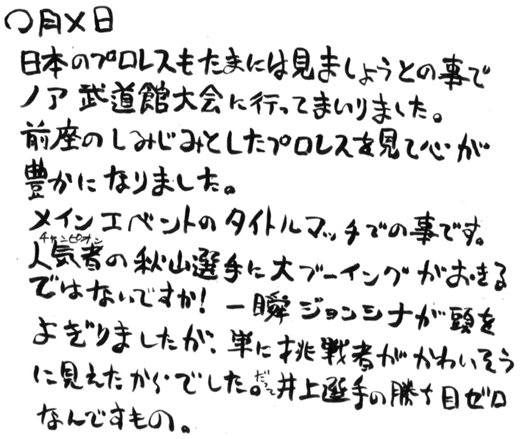 〇月×日
日本のプロレスもたまには見ましょうとの事で
ノア武道館大会に行ってまいりました。
前座のしみじみとしたプロレスを見て心が
豊かになりました。
メインエベントのタイトルマッチでの事です。
チャンピオン
人気者の秋山選手に大ブーイングがおきる
ではないですか!一瞬ジョンシナが頭を
よぎりましたが、単に挑戦者がかわいそう
に見えたからでした。だって井上選手の勝ち目ゼロ
なんですもの。